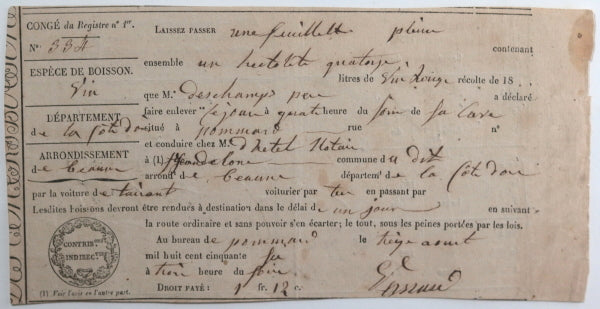 CONGÉ du Registre n° 1er.
N° 334
LAISSEZ PASSER une feuillette pleine contenant
ensemble un hectolitre quatorze
ESPÈCE DE BOISSON.
Vin
litres de Vin Rouge récolte de 18
que M. deschamps pere a déclaré
faire enlever cejour à quatre heure du soir de sa Cave
DÉPARTEMENT
de la Côte d'or
situé à pommard rue n°
et conduire chez M. Notaire
ARRONDISSEMENT
de beaune
à (1) commune du dit
arrondt de beaune départemt de la Côte d'or
par la voiture de voiturier par en passant par
Lesdites boissons devront être rendus à destination dans le délai de un jour en suivant
la route ordinaire et sans pouvoir s'en écarter; le tout, sous les peines portées par les lois.
CONTRIB.ons INDIREC.tes
Au bureau de pommard le treize aout
mil huit cent cinquante six
à trois heure du soir
DROIT PAYÉ: 1 fr. 12 c.
(1) Voir l'avis en l'autre part.